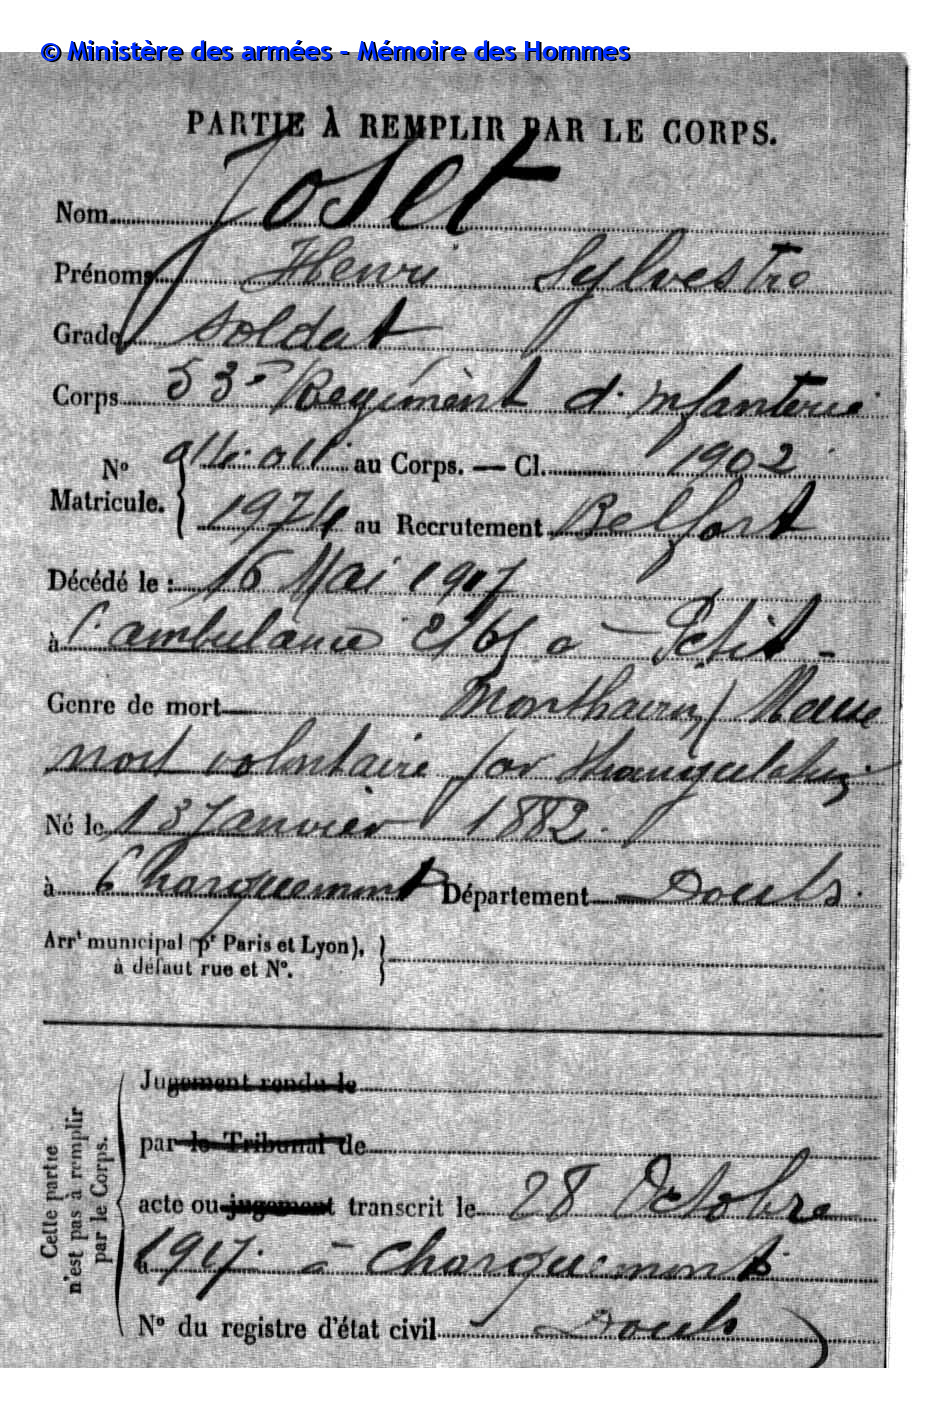 © Ministère des armées - Mémoire des Hommes
PARTIE À REMPLIR PAR LE CORPS.
Nom Joset
Prénoms Henri Sylvestre
Grade soldat
Corps 53e Régiment d'Infanterie
No Matricule. { au Corps. — Cl. 1902
1974 au Recrutement Belfort
Décédé le : 16 Mai 1917
à l'ambulance 2/65 à Petit-
Genre de mort Monthairon Meuse
mort volontaire par strangulation
Né le 13 Janvier 1882.
à Charquemont Département Doubs.
Arrt municipal (pr Paris et Lyon), }
à défaut rue et No.
Cette partie
n'est pas à remplir
par le Corps.
Jugement rendu le
par le Tribunal de
acte ou jugement transcrit le 28 Octobre
à 1917. à Charquemont
No du registre d'état civil Doubs